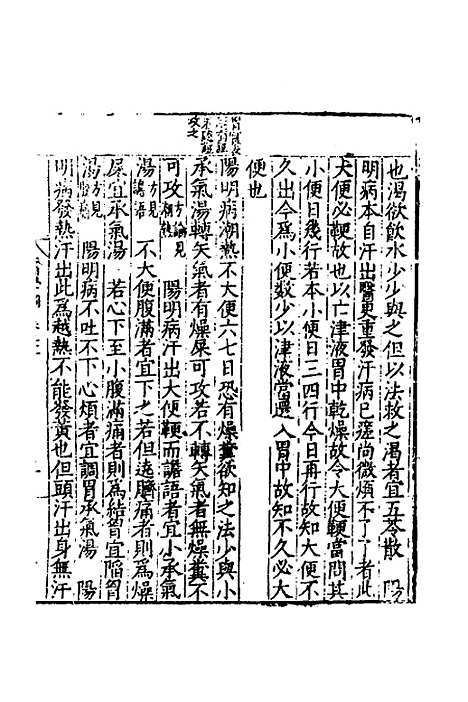 也渴欲飲水少少與之但以法救之渴者宜五苓散　陽
明病本自汗出醫更重發汗病已瘥尚微煩不了了者此
大便必鞕故也以亡津液胃中乾燥故令大便鞕當問其
小便日幾行若本小便日三四行今日再行故知大便不
久出今爲小便數少以津液當還入胃中故知不久必大
便也
陽明病潮熱不大便六七日恐有燥糞欲知之法少與小
承氣湯轉矢氣者有燥屎可攻若不轉矢氣者無燥糞不
可攻方見潮熱　陽明病汗出大便鞕而譫語者宜小承氣
湯方見譫語　不大便腹滿者宜下之若但遶臍痛者則爲燥
屎宜承氣湯　若心下至小腹滿痛者則爲結胷宜陷胷
湯方見　陽明病不吐不下心煩者宜調胃承氣湯　陽
明病發熱汗出此爲越熱不能發黃也但頭汗出身無汗